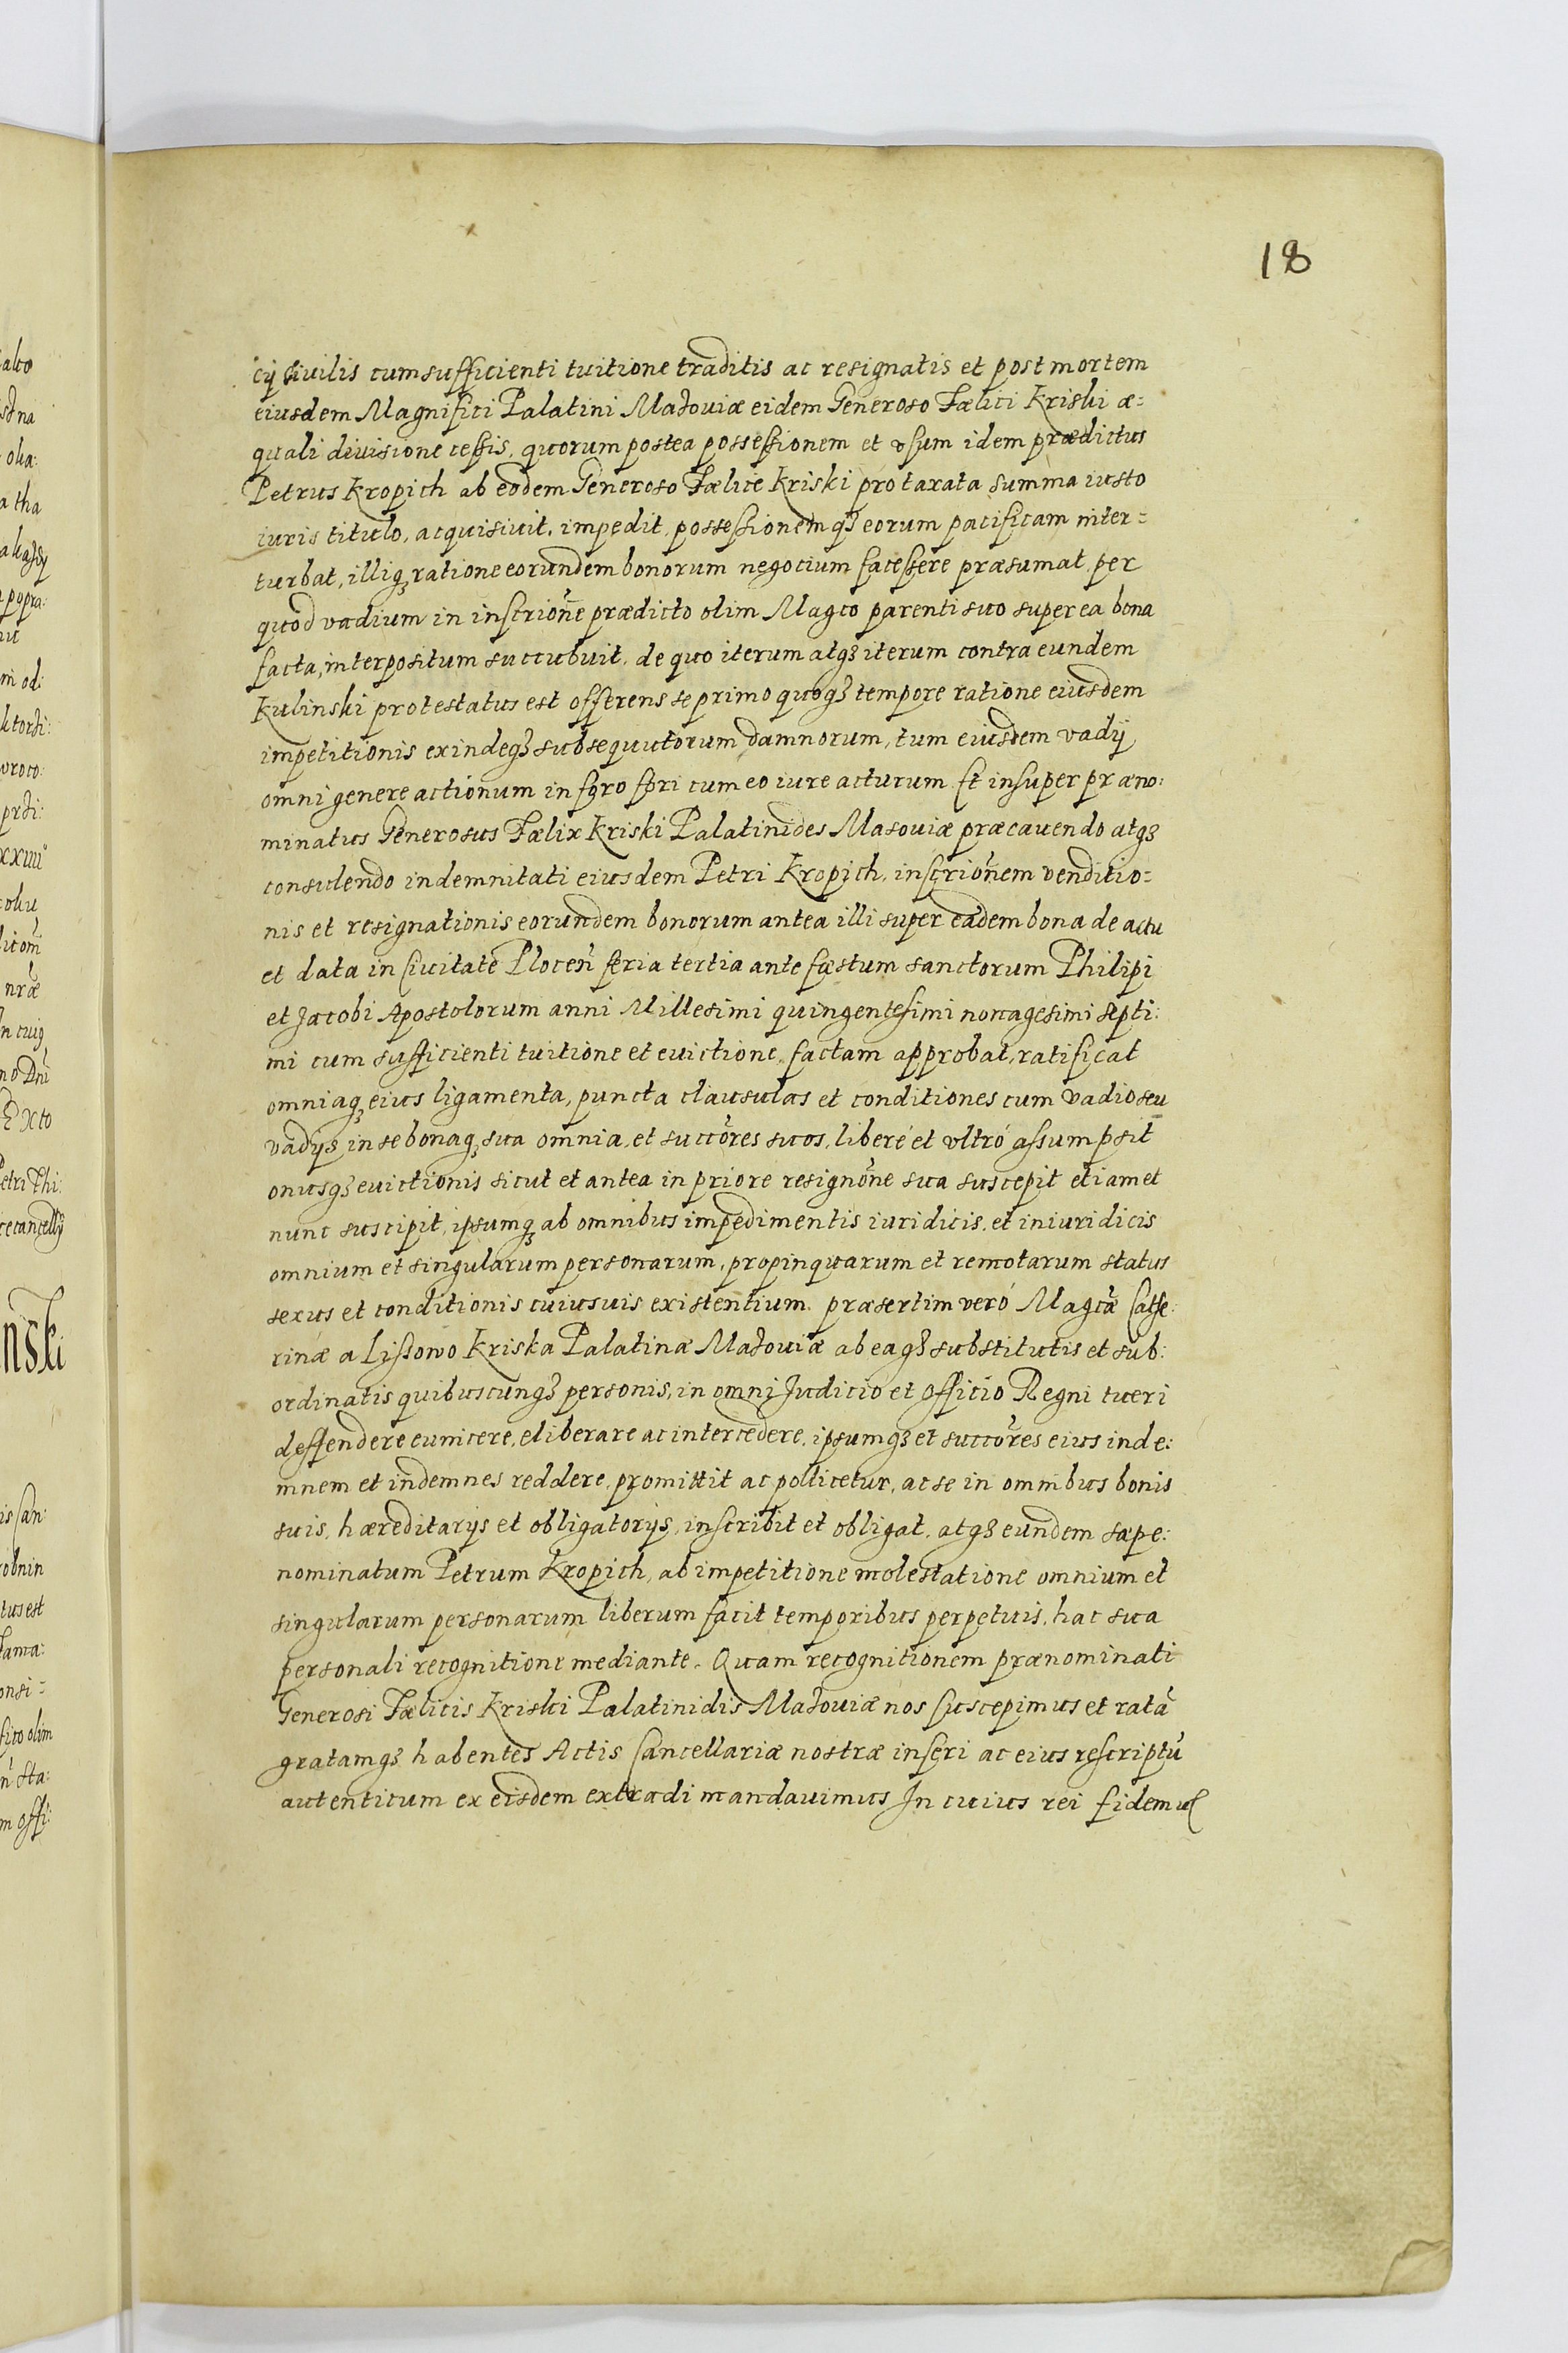 18
cij ciuilis cum sufficienti tuitione traditis ac resignatis et post mortem
eiusdem Magnifici Palatini Mazouiæ eidem Generoso Fælici Kriski æ=
quali diuisione cessis, quorum postea possessionem et vsum idem prædictus
Petrus Kropich ab eodem Generoso Fælice Kriski pro taxata summa iusto
iuris titulo, acquisiuit, impedit, possessionemqȝ eorum pacificam inter=
turbat, illiqȝ ratione eorundem bonorum negocium facessere præsumat, per
quod vadium in inscrio͠ne prædicto olim Magco parenti suo super ea bona
facta, interpositum succubuit, de quo iterum atqȝ iterum contra eundem
Kulinski protestatus est offerens se primo quoqȝ tempore ratione eiusdem
impetitionis exindeqȝ subsequutorum damnorum, tum eiusdem vadij
omni genere actionum in foro fori cum eo iure acturum. Et insuper præno:
minatus Generosus Fælix Kriski Palatinides Masouiæ præcauendo atqȝ
consulendo indemnitati eiusdem Petri Kropich, inscrio͠nem venditio=
nis et resignationis eorundem bonorum antea illi super eadem bona de actu
et data in Ciuitate Plocen͠ feria tertia ante fæstum sanctorum Philipi
et Jacobi Apostolorum anni Millesimi quingentesimi nonagesimi septi:
mi cum sufficienti tuitione et euictione factam approbat, ratificat
omniaqȝ eius ligamenta, puncta clausulas et conditiones cum vadio seu
vadijs in se bonaqȝ sua omnia, et succo͠res suos, liberé et vltró assumpsit
onusqȝ euictionis sicut et antea in priore resigno͠ne sua suscepit etiam et
nunc suscipit, ipsumqȝ ab omnibus impedimentis iuridicis, et iniuridicis
omnium et singularum personarum, propinquarum et remotarum status
sexus et conditionis cuiusuis existentium, præsertim veró Magcæ͠ Cathe:
rinæ a Lissowo Kriska Palatinæ Mazouiæ ab eaqȝ substitutis et sub:
ordinatis quibuscunqȝ personis, in omni Judicio et Officio Regni tueri
deffendere euincere, eliberare ac intercedere, ipsumqȝ et succo͠res eius inde:
mnem et indemnes reddere, promittit ac pollicetur, ac se in omnibus bonis
suis, hæreditarijs et obligatorijs, inscribit et obligat, atqȝ eundem sæpe:
nominatum Petrum Kropich, ab impetitione molestatione omnium et
singularum personarum liberum facit temporibus perpetuis, hac sua
personali recognitione mediante. Quam recognitionem prænominati
Generosi Fælicis Kriski Palatinidis Mazouiæ nos suscepimus et rata͠
gratamqȝ habentes Actis Cancellariæ nostræ inseri ac eius rescriptu͠
autenticum ex eisdem extradi mandauimus In cuius rei fidem